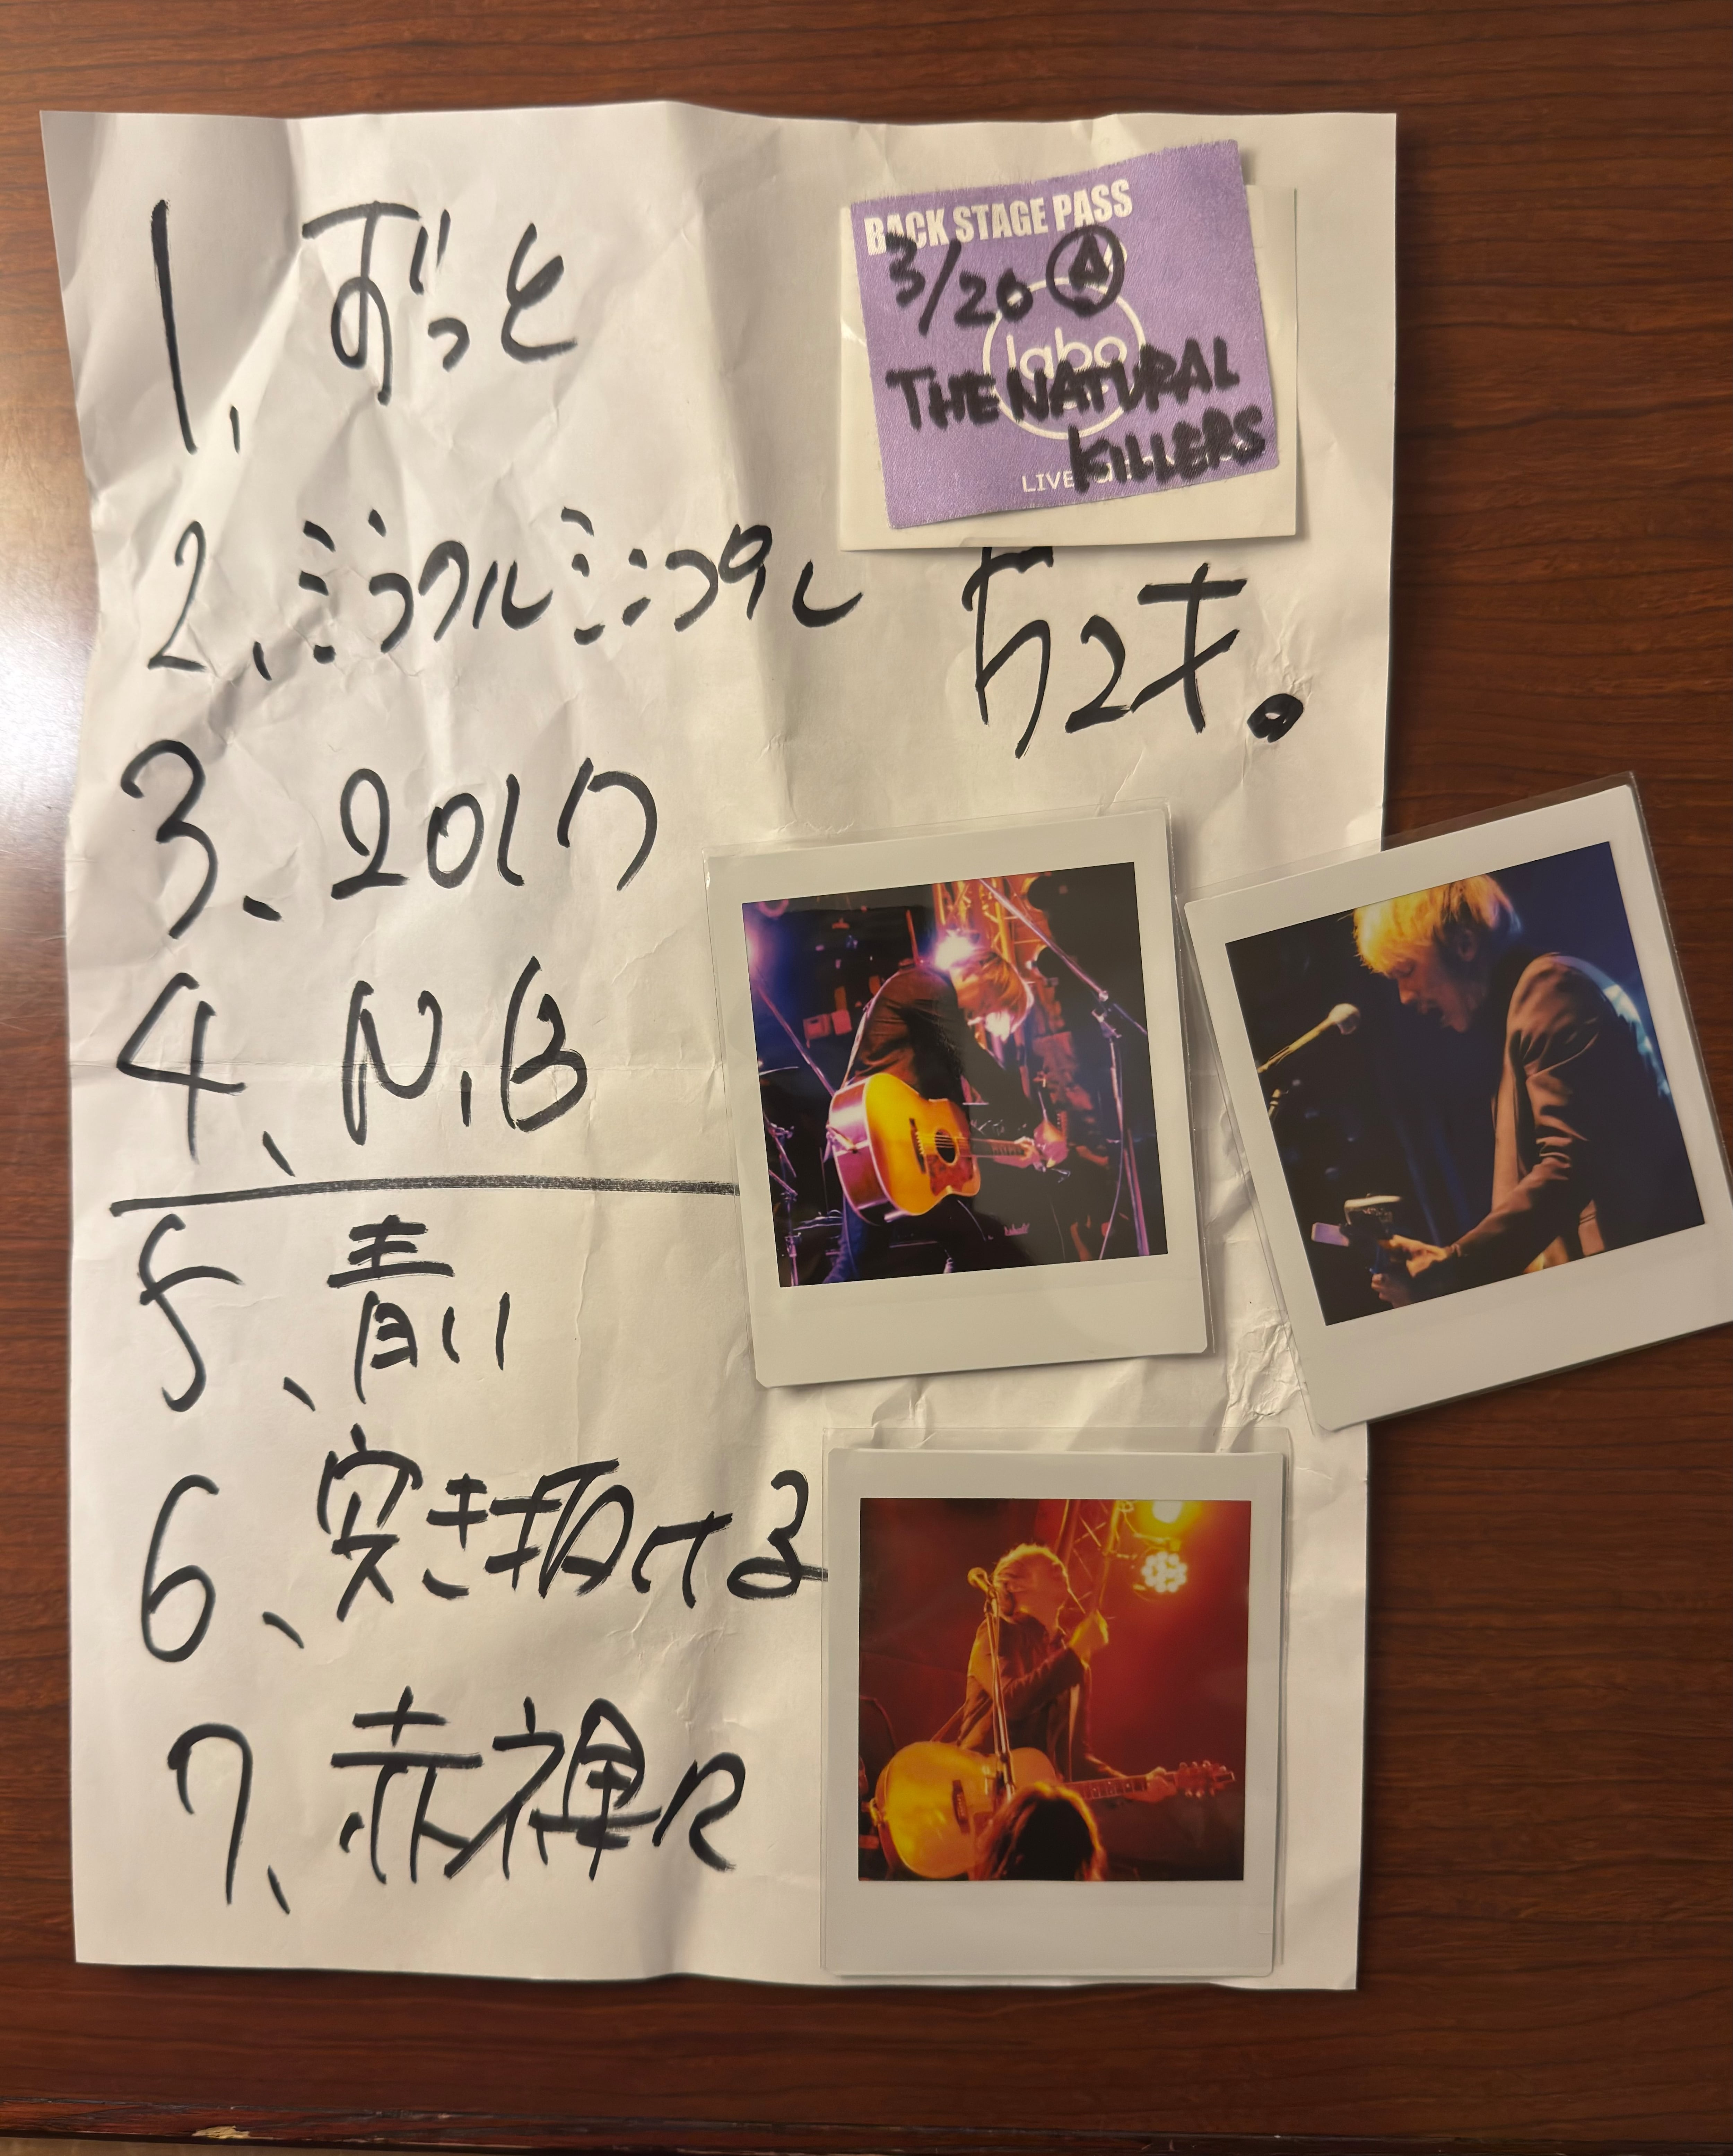 BACK STAGE PASS
3/20 Ⓐ
labo
THE NATURAL
KILLERS
LIVE
1、ずっと
2、ミラクルミニラクル
52才。
3、2017
4、N.B
5、青い
6、突き抜ける
7、赤裸々